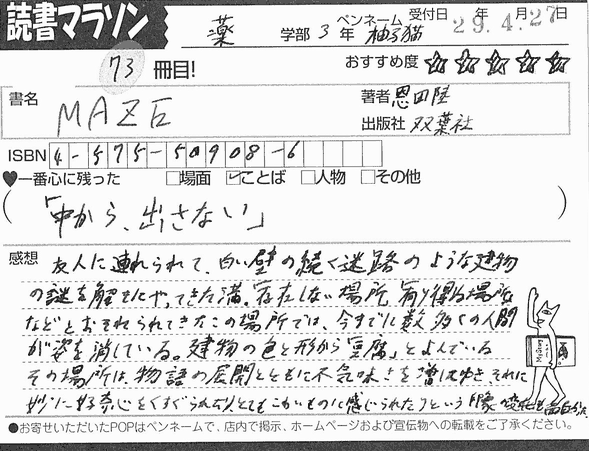 読書マラソン
薬 学部 3 年 ペンネーム 柚子猫 受付日 29年4月27日
73 冊目! おすすめ度 ☆☆☆☆☆
書名 MAZE 著者 恩田陸
出版社 双葉社
ISBN 4-575-50908-6
♥一番心に残った □場面 ☑ことば □人物 □その他
(「中から、出さない」)
感想 友人に連れられて、白い壁の続く迷路のような建物
の謎を解きにやってきた満。存在しない場所、有り得ぬ場所
などとおそれられてきたこの場所では、今までに数多くの人間
が姿を消している。建物の色と形から「豆腐」とよんでいる
その場所は、物語の展開とともに不気味さを増してゆき、それに
妙に好奇心をくすぐられ
とてもこわいものに感じられたりという印象
も面白かった。
●お寄せいただいたPOPはペンネームで、店内で掲示、ホームページおよび宣伝物への転載をご了承ください。